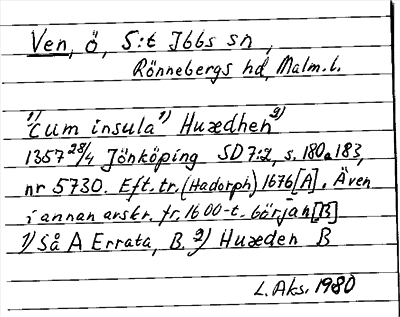 Ven, ö, S:t Ibbs sn,
Rönnebergs hd, Malm. l.
1) "cum insula" 1) Huædhen 2)
1357 28/4 Jönköping SD 7:2, s. 180 o 183,
nr 5730. Eft. tr. (Hadorph) 1676 [A]. Även
i annan avskr. fr. 1600-t. början [B]
1) Så A Errata, B. 2) Huæden B
L. Aks. 1980